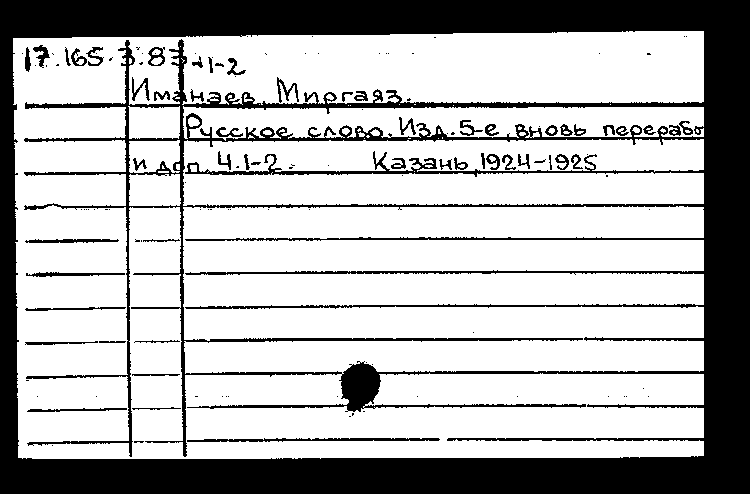 17.165.3.83 1-2
Иманаев, Миргаяз.
Русское слово. Изд. 5-е, вновь перерабо
и доп. Ч.1-2. Казань, 1924-1925